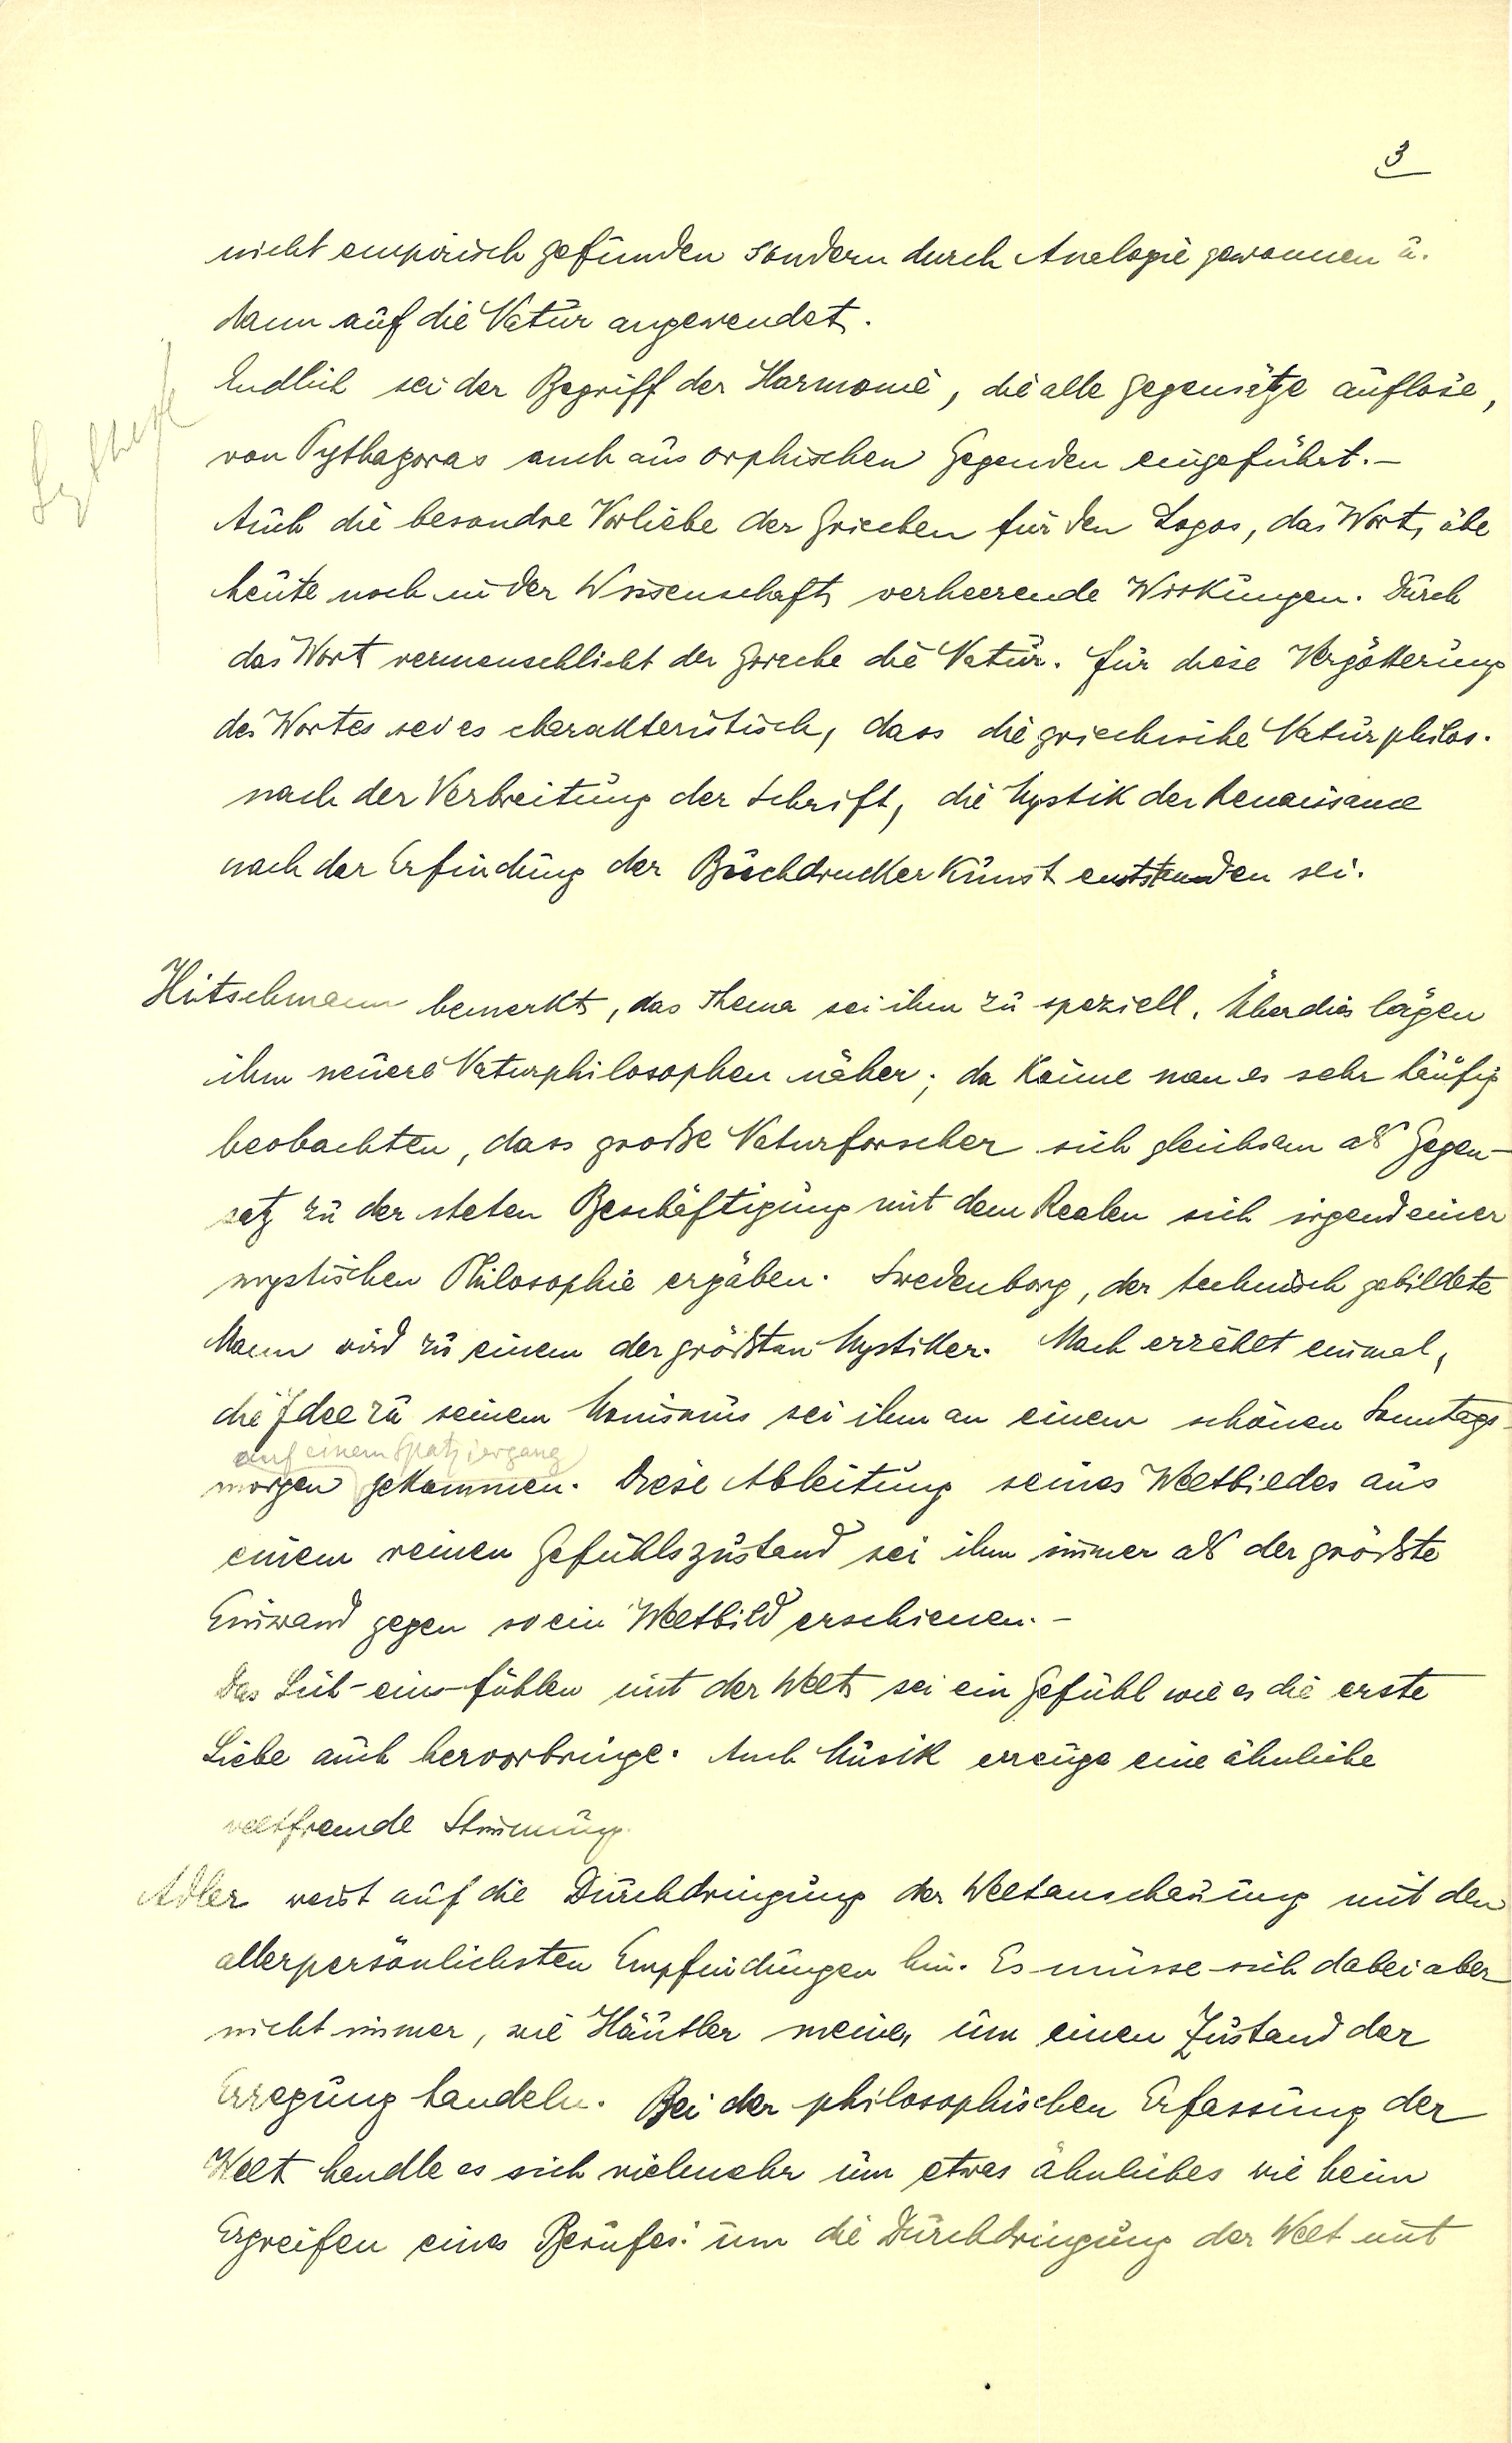 3
nicht empirisch gefunden sondern durch Analogie gewonnen u.
dann auf die Natur angewendet.
Endlich sei der Begriff der Harmonie, die alle Gegensätze auflöse,
von Pythagoras auch aus orphischen Gegenden eingeführt.–
Auch die besondre Vorliebe der Griechen für den Logos, das Wort, übe
heute noch in der Wissenschaft verheerende Wirkungen. Durch
das Wort vermenschlicht der Grieche die Natur. Für diese Vergötterung
des Wortes sei es charakteristisch, dass die griechische Naturphilos.
nach der Verbreitung der Schrift, die Mystik der Renaissance
nach der Erfindung der Buchdruckerkunst entstanden sei.
Hitschmann bemerkt, das Thema sei ihm zu speziell. Überdies lägen
ihm neuere Naturphilosophen näher; da könne man es sehr häufig
beobachten, dass große Naturforscher sich gleichsam als Gegen-
satz zu der steten Beschäftigung mit dem Realen sich irgendeiner
mystischen Philosophie ergäben. Swedenborg, der technisch gebildete
Mann wird zu einem der größten Mystiker. Mach erzählt einmal,
die Idee zu seinem Monismus sei ihm an einem schönen Sonntags-
auf einem Spatziergang
morgen gekommen. Diese Ableitung seines Weltbildes aus
einem reinen Gefühlszustand sei ihm immer als der größte
Einwand gegen so ein Weltbild erschienen.–
Das Sich-eins-fühlen mit der Welt sei ein Gefühl wie es die erste
Liebe auch hervorbringe. Auch Musik erzeuge eine ähnliche
weltfremde Stimmung.
Adler weist auf die Durchdringung der Weltanschauung mit den
allerpersönlichsten Empfindungen hin. Es müsse sich dabei aber
nicht immer, wie Häutler meine, um einen Zustand der
Erregung handeln. Bei der philosophischen Erfassung der
Welt handle es sich vielmehr um etwas ähnliches wie beim
Ergreifen eines Berufes: um die Durchdringung der Welt mit